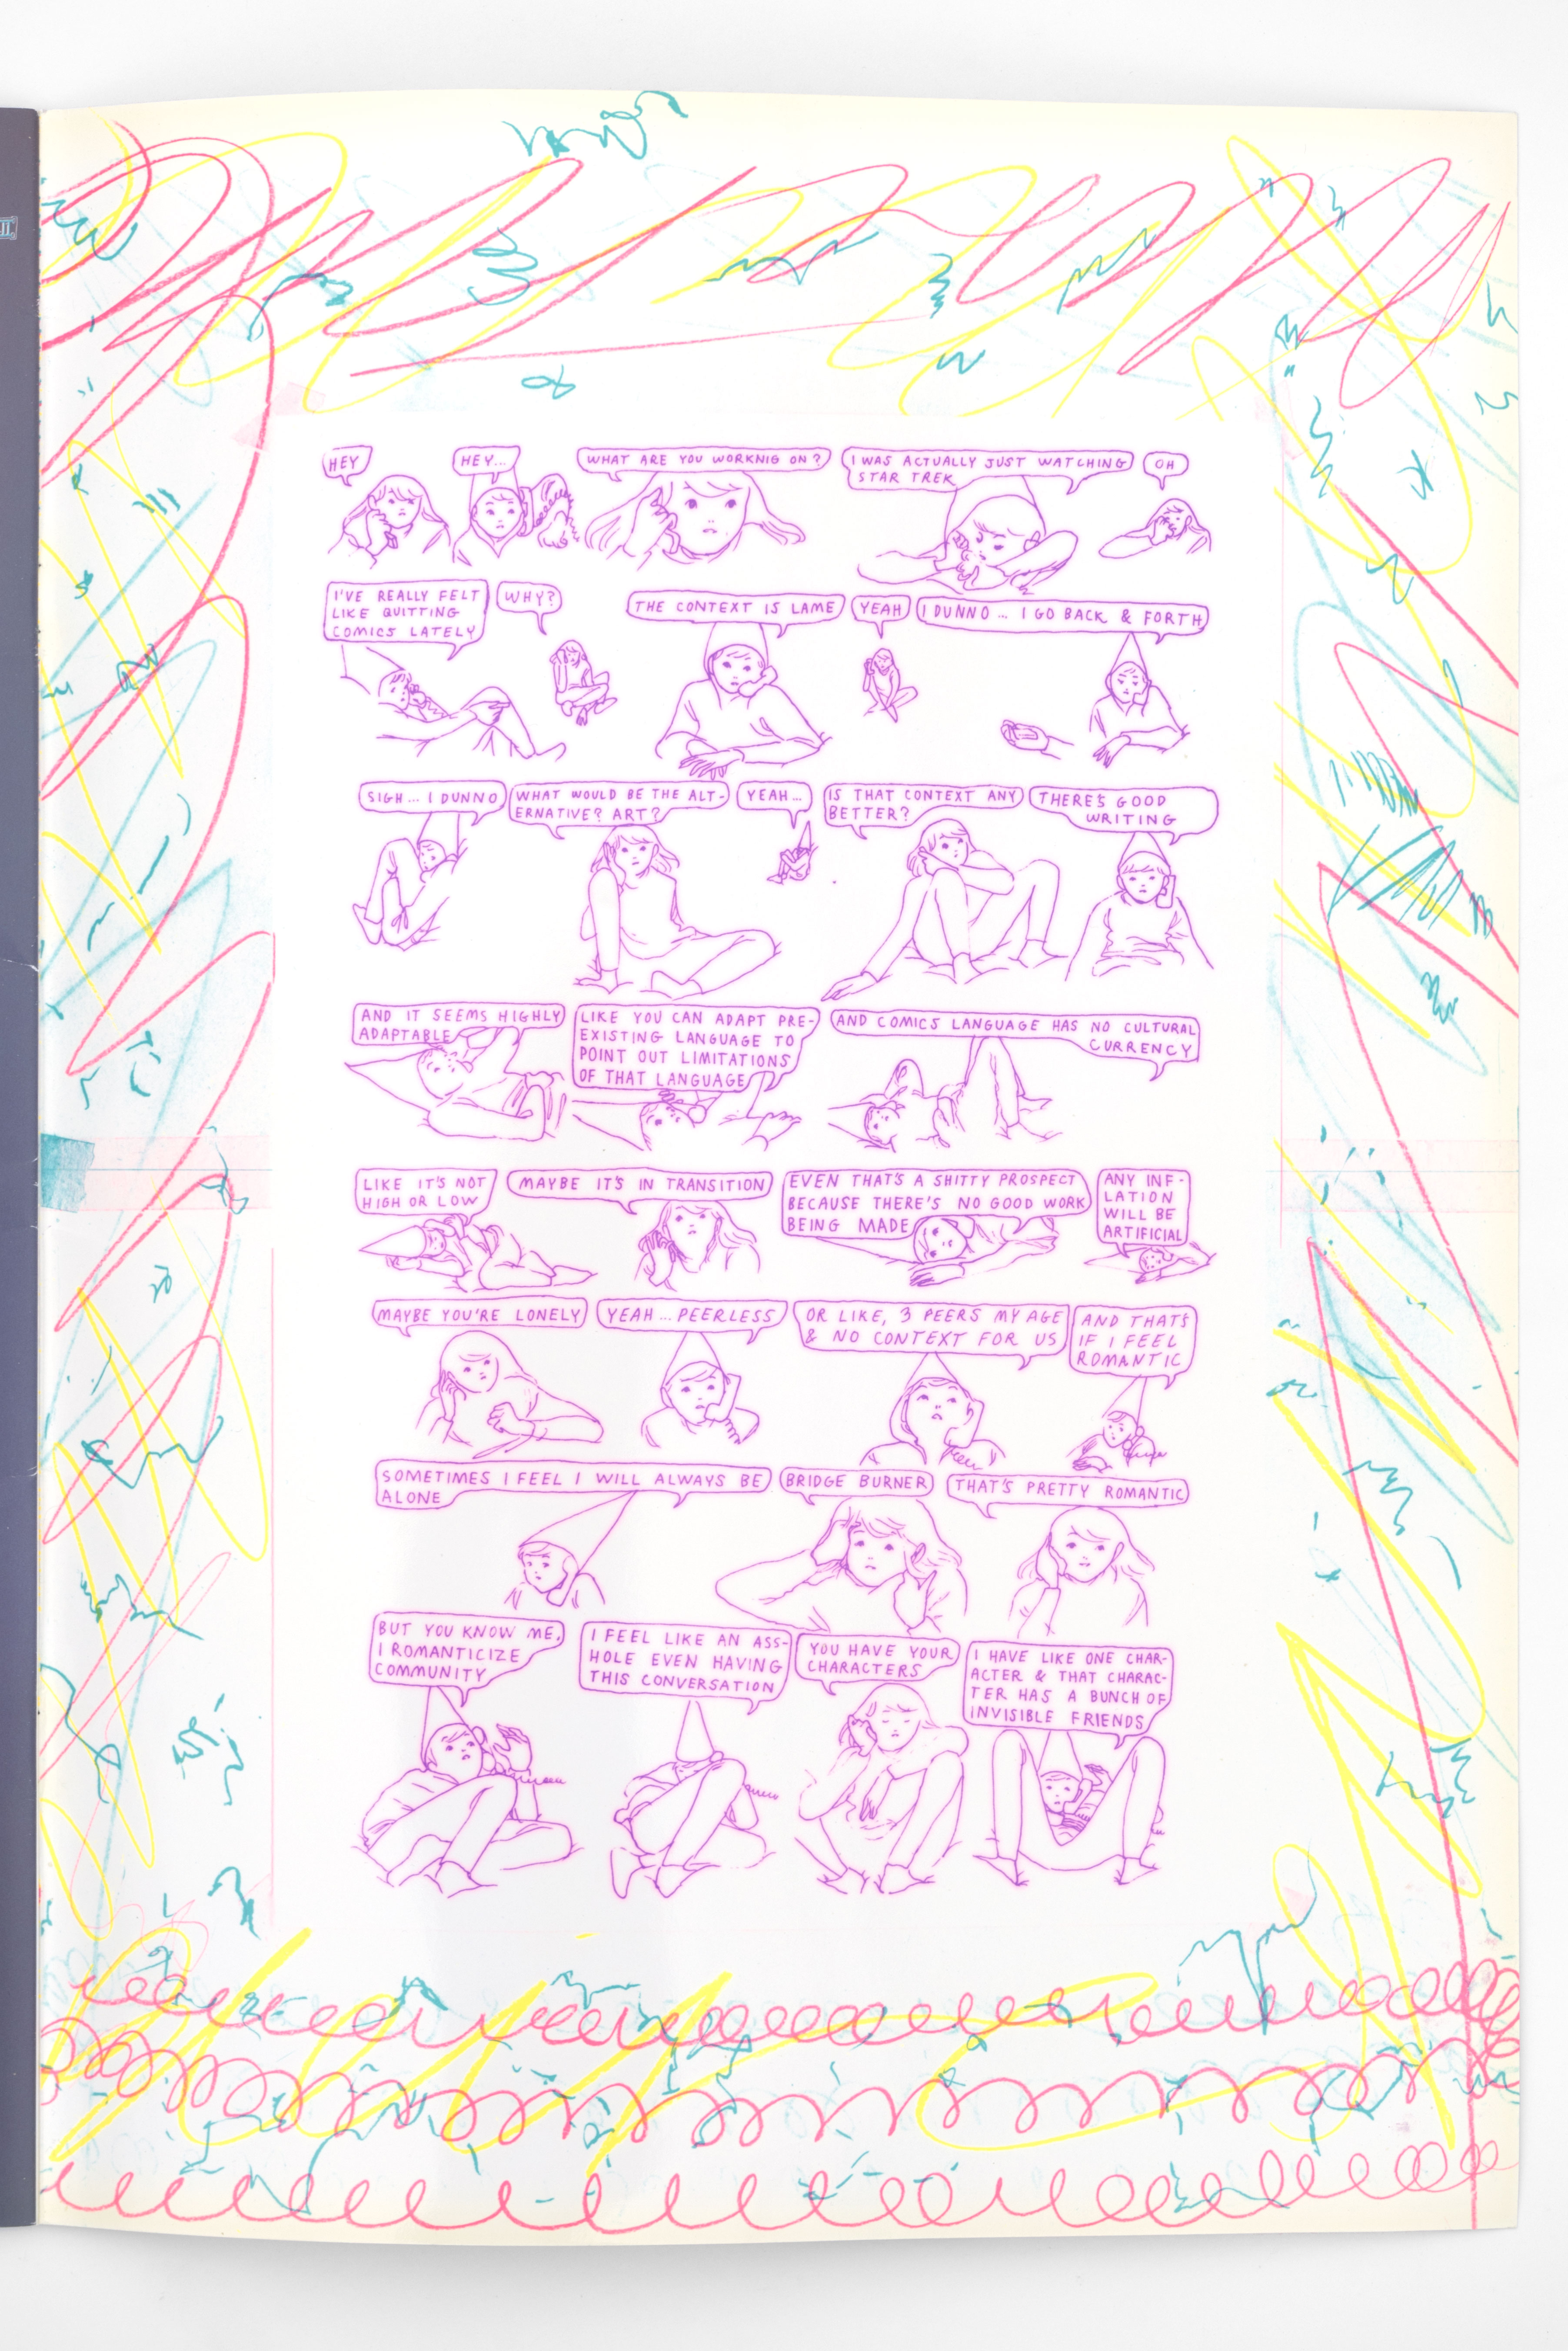 HEY
HEY...
WHAT ARE YOU WORKNIG ON?
I WAS ACTUALLY JUST WATCHING
STAR TREK
OH
I'VE REALLY FELT
LIKE QUITTING
COMICS LATELY
WHY?
THE CONTEXT IS LAME
YEAH
I DUNNO... I GO BACK & FORTH
SIGH... I DUNNO
WHAT WOULD BE THE ALT-
ERNATIVE? ART?
YEAH...
IS THAT CONTEXT ANY
BETTER?
THERE'S GOOD
WRITING
AND IT SEEMS HIGHLY
ADAPTABLE
LIKE YOU CAN ADAPT PRE-
EXISTING LANGUAGE TO
POINT OUT LIMITATIONS
OF THAT LANGUAGE
AND COMICS LANGUAGE HAS NO CULTURAL
CURRENCY
LIKE IT'S NOT
HIGH OR LOW
MAYBE IT'S IN TRANSITION
EVEN THAT'S A SHITTY PROSPECT
BECAUSE THERE'S NO GOOD WORK
BEING MADE
ANY INF-
LATION
WILL BE
ARTIFICIAL
MAYBE YOU'RE LONELY
YEAH... PEERLESS
OR LIKE, 3 PEERS MY AGE
& NO CONTEXT FOR US
AND THAT'S
IF I FEEL
ROMANTIC
SOMETIMES I FEEL I WILL ALWAYS BE
ALONE
BRIDGE BURNER
THAT'S PRETTY ROMANTIC
BUT YOU KNOW ME,
I ROMANTICIZE
COMMUNITY
I FEEL LIKE AN ASS-
HOLE EVEN HAVING
THIS CONVERSATION
YOU HAVE YOUR
CHARACTERS
I HAVE LIKE ONE CHAR-
ACTER & THAT CHARAC-
TER HAS A BUNCH OF
INVISIBLE FRIENDS